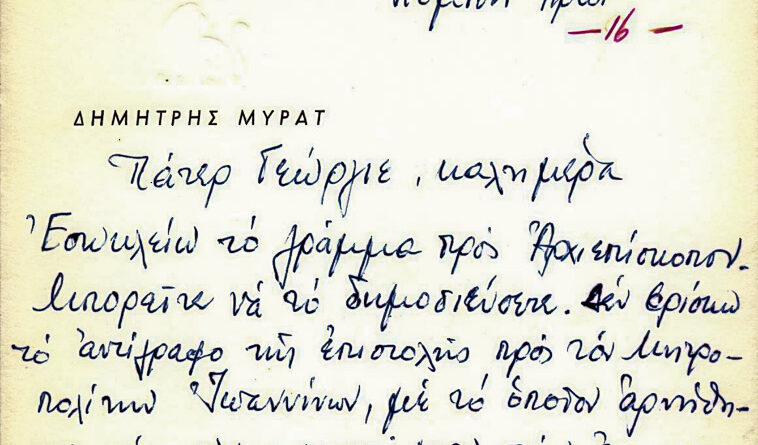 Πέμπτη πρωί
—16—
ΔΗΜΗΤΡΗΣ ΜΥΡΑΤ
Πάτερ Γεώργιε, καλημέρα
Ἐσωκλείω τό γράμμα πρός Ἀρχιεπίσκοπον.
Μπορεῖτε νά τό δημοσιεύσετε. Δέν βρίσκω
τό ἀντίγραφο τῆς ἐπιστολῆς πρός τόν Μητρο-
πολίτην Ἰωαννίνων, μέ τό ὁποῖον ἀρνήθη-